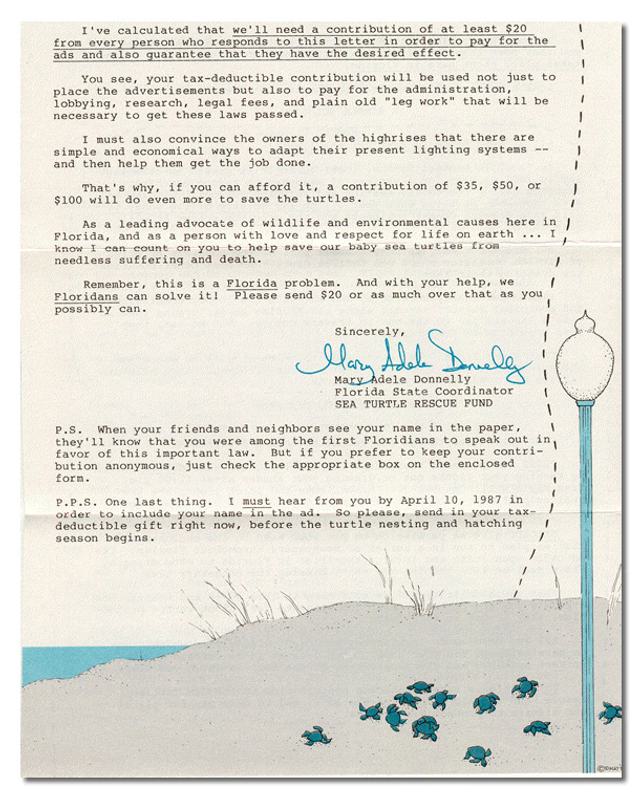 I've calculated that we'll need a contribution of at least $20
from every person who responds to this letter in order to pay for the
ads and also guarantee that they have the desired effect.
You see, your tax-deductible contribution will be used not just to
place the advertisements but also to pay for the administration,
lobbying, research, legal fees, and plain old "leg work" that will be
necessary to get these laws passed.
I must also convince the owners of the highrises that there are
simple and economical ways to adapt their present lighting systems --
and then help them get the job done.
That's why, if you can afford it, a contribution of $35, $50, or
$100 will do even more to save the turtles.
As a leading advocate of wildlife and environmental causes here in
Florida, and as a person with love and respect for life on earth ... I
know I can count on you to help save our baby sea turtles from
needless suffering and death.
Remember, this is a Florida problem. And with your help, we
Floridans can solve it! Please send $20 or as much over that as you
possibly can.
Sincerely,
Mary Adele Donnelly
Mary Adele Donnelly
Florida State Coordinator
SEA TURTLE RESCUE FUND
P.S. When your friends and neighbors see your name in the paper,
they'll know that you were among the first Floridians to speak out in
favor of this important law. But if you prefer to keep your contri-
bution anonymous, just check the appropriate box on the enclosed
form.
P.P.S. One last thing. I must hear from you by April 10, 1987 in
order to include your name in the ad. So please, send in your tax-
deductible gift right now, before the turtle nesting and hatching
season begins.